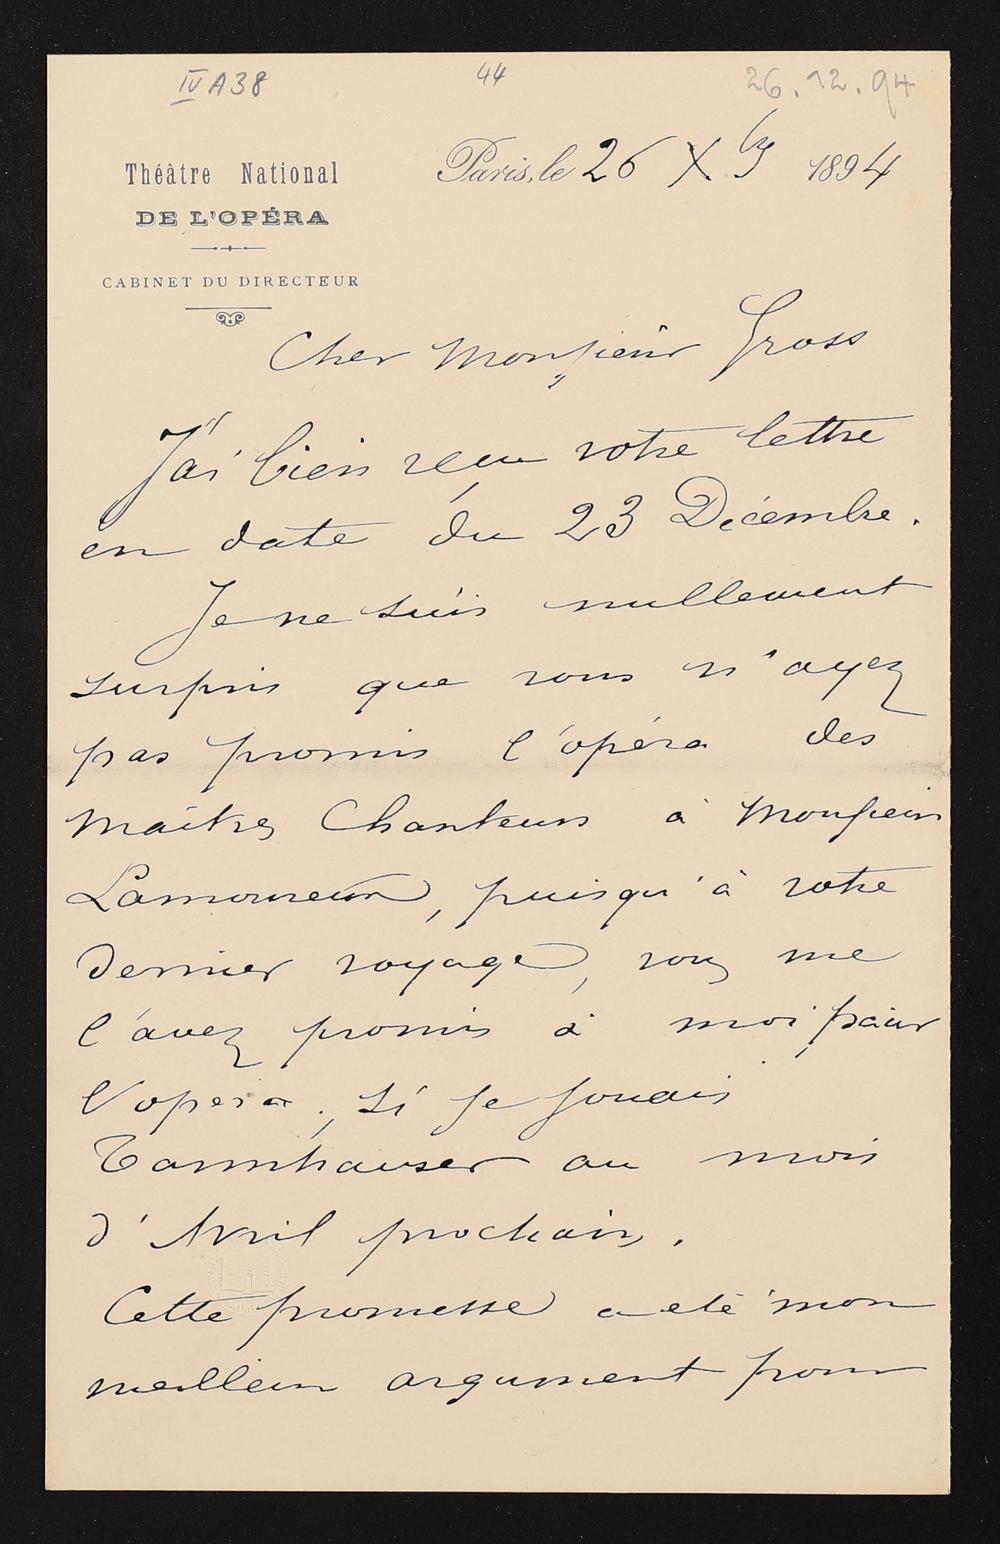 IV A 38
44
26.12.94
Théâtre National
DE L'OPÉRA
CABINET DU DIRECTEUR
Paris, le 26 Xby 1894
Cher Monsieur Gross
J'ai bien reçu votre lettre
en date du 23 Décembre.
Je ne suis nullement
surpris que vous n'ayez
pas promis l'opéra des
Maîtres Chanteurs à Monsieur
Lamoureux, puisqu'à votre
dernier voyage, vous me
l'avez promis à moi, pour
l'opera, si je jouais
Tannhauser au mois
d'Avril prochain.
Cette promesse a été mon
meilleur argument pour